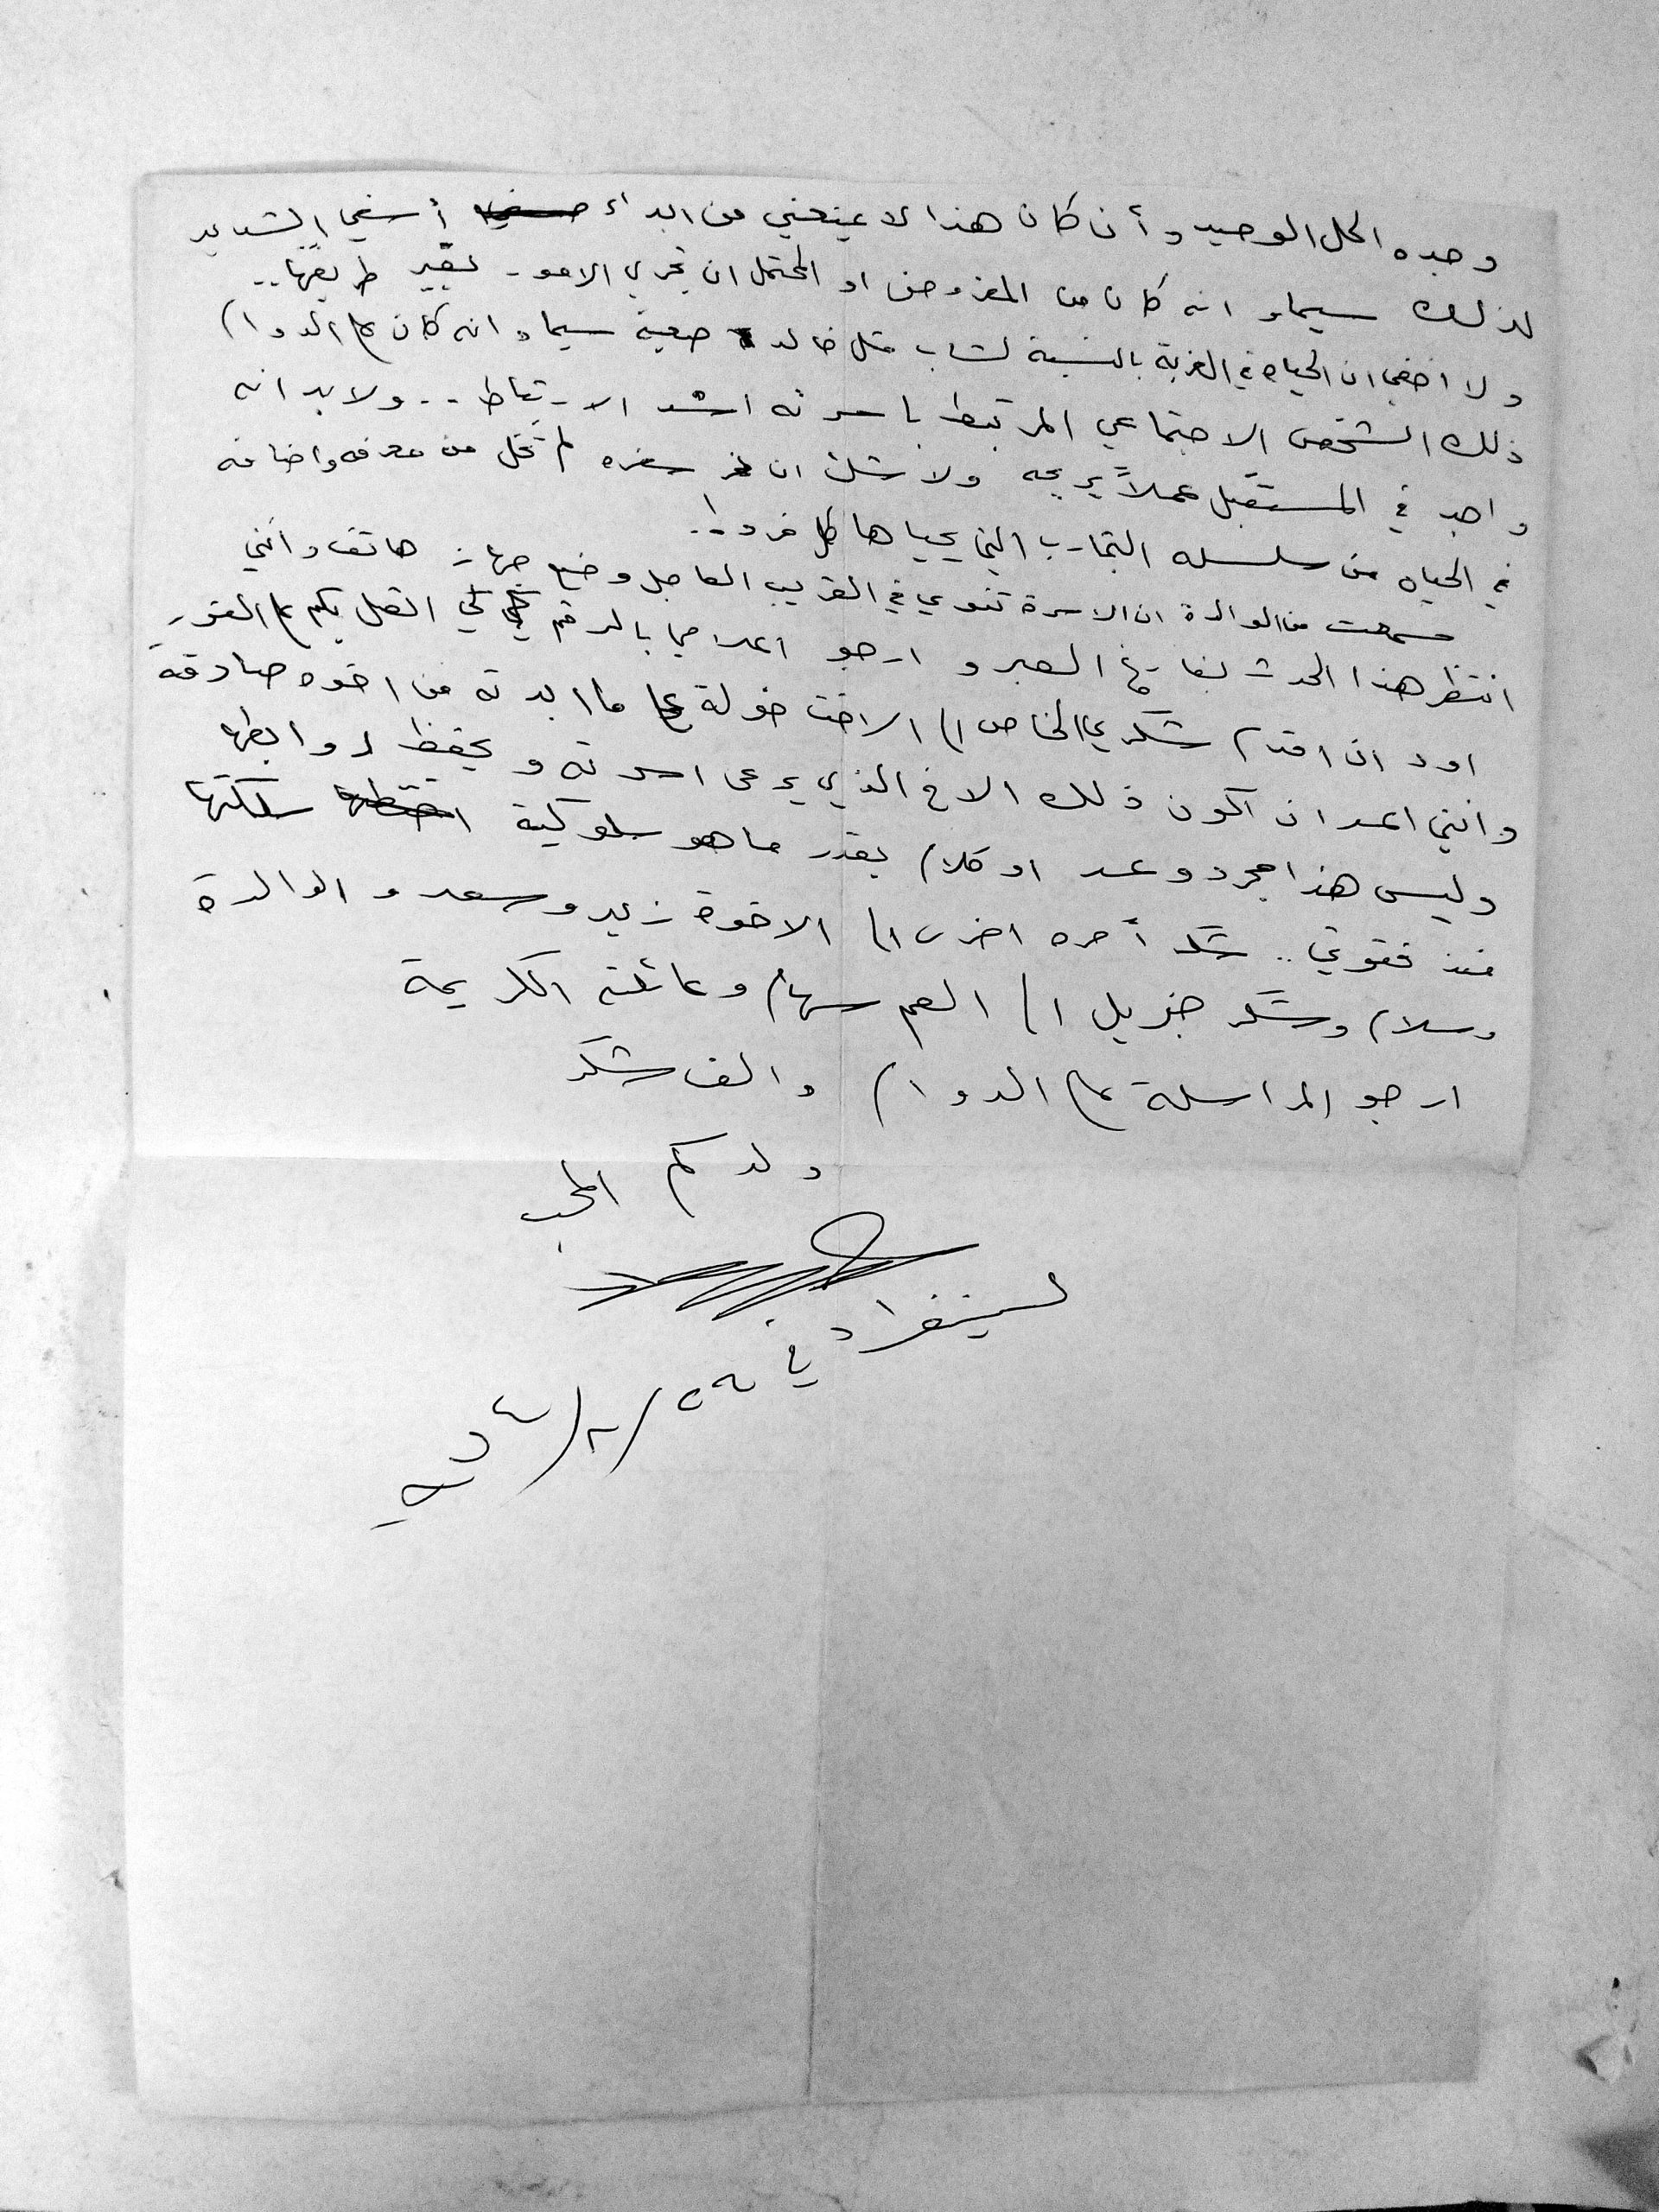 وجده الحل الوحيد وأن كان هذا لا يمنعني من ابداء أسفي الشديد
لذلك سيما وانه كان من المفروض او المحتمل ان تجري الامور بغير طريقها..
ولا اخفي ان الحياة في الغربة بالنسبة لشاب مثل خالد صعبة سيما وانه كان على الدوام
ذلك الشخص الاجتماعي المرتبط باسرته اشد الارتباط .. ولابد انه
واجد في المستقبل عملاً يريحه ولا شك ان سفره لم تخل من معرفه واضافه
في الحياه من سلسله التجارب التي يحياها كل فرد ..
سمعت من الوالدة ان الاسرة تنوي في القريب العاجل وضع جهاز هاتف وانني
انتظر هذا الحدث بفارغ الصبر وارجو اعلامي بالرقم لكي اتصل بكم على الفور
اود ان اقدم شكري الخاص الى الاخت خولة على ما ابدته من اخوه صادقة
وانني اعد ان اكون ذلك الاخ الذي يرعى اسرته ويحفظ روابطها
وليس هذا مجرد وعد او كلام بقدر ما هو سلوكية سلكتها
منذ فتوتي .. شكر أمره اخرى الى الاخوة زيد وسعد والوالدة
وسلام وشكر جزيل الى العم سهام وعائلته الكريمة
ارجو المراسلة على الدوام والف شكر
ولدكم المحب
لسينغراد في